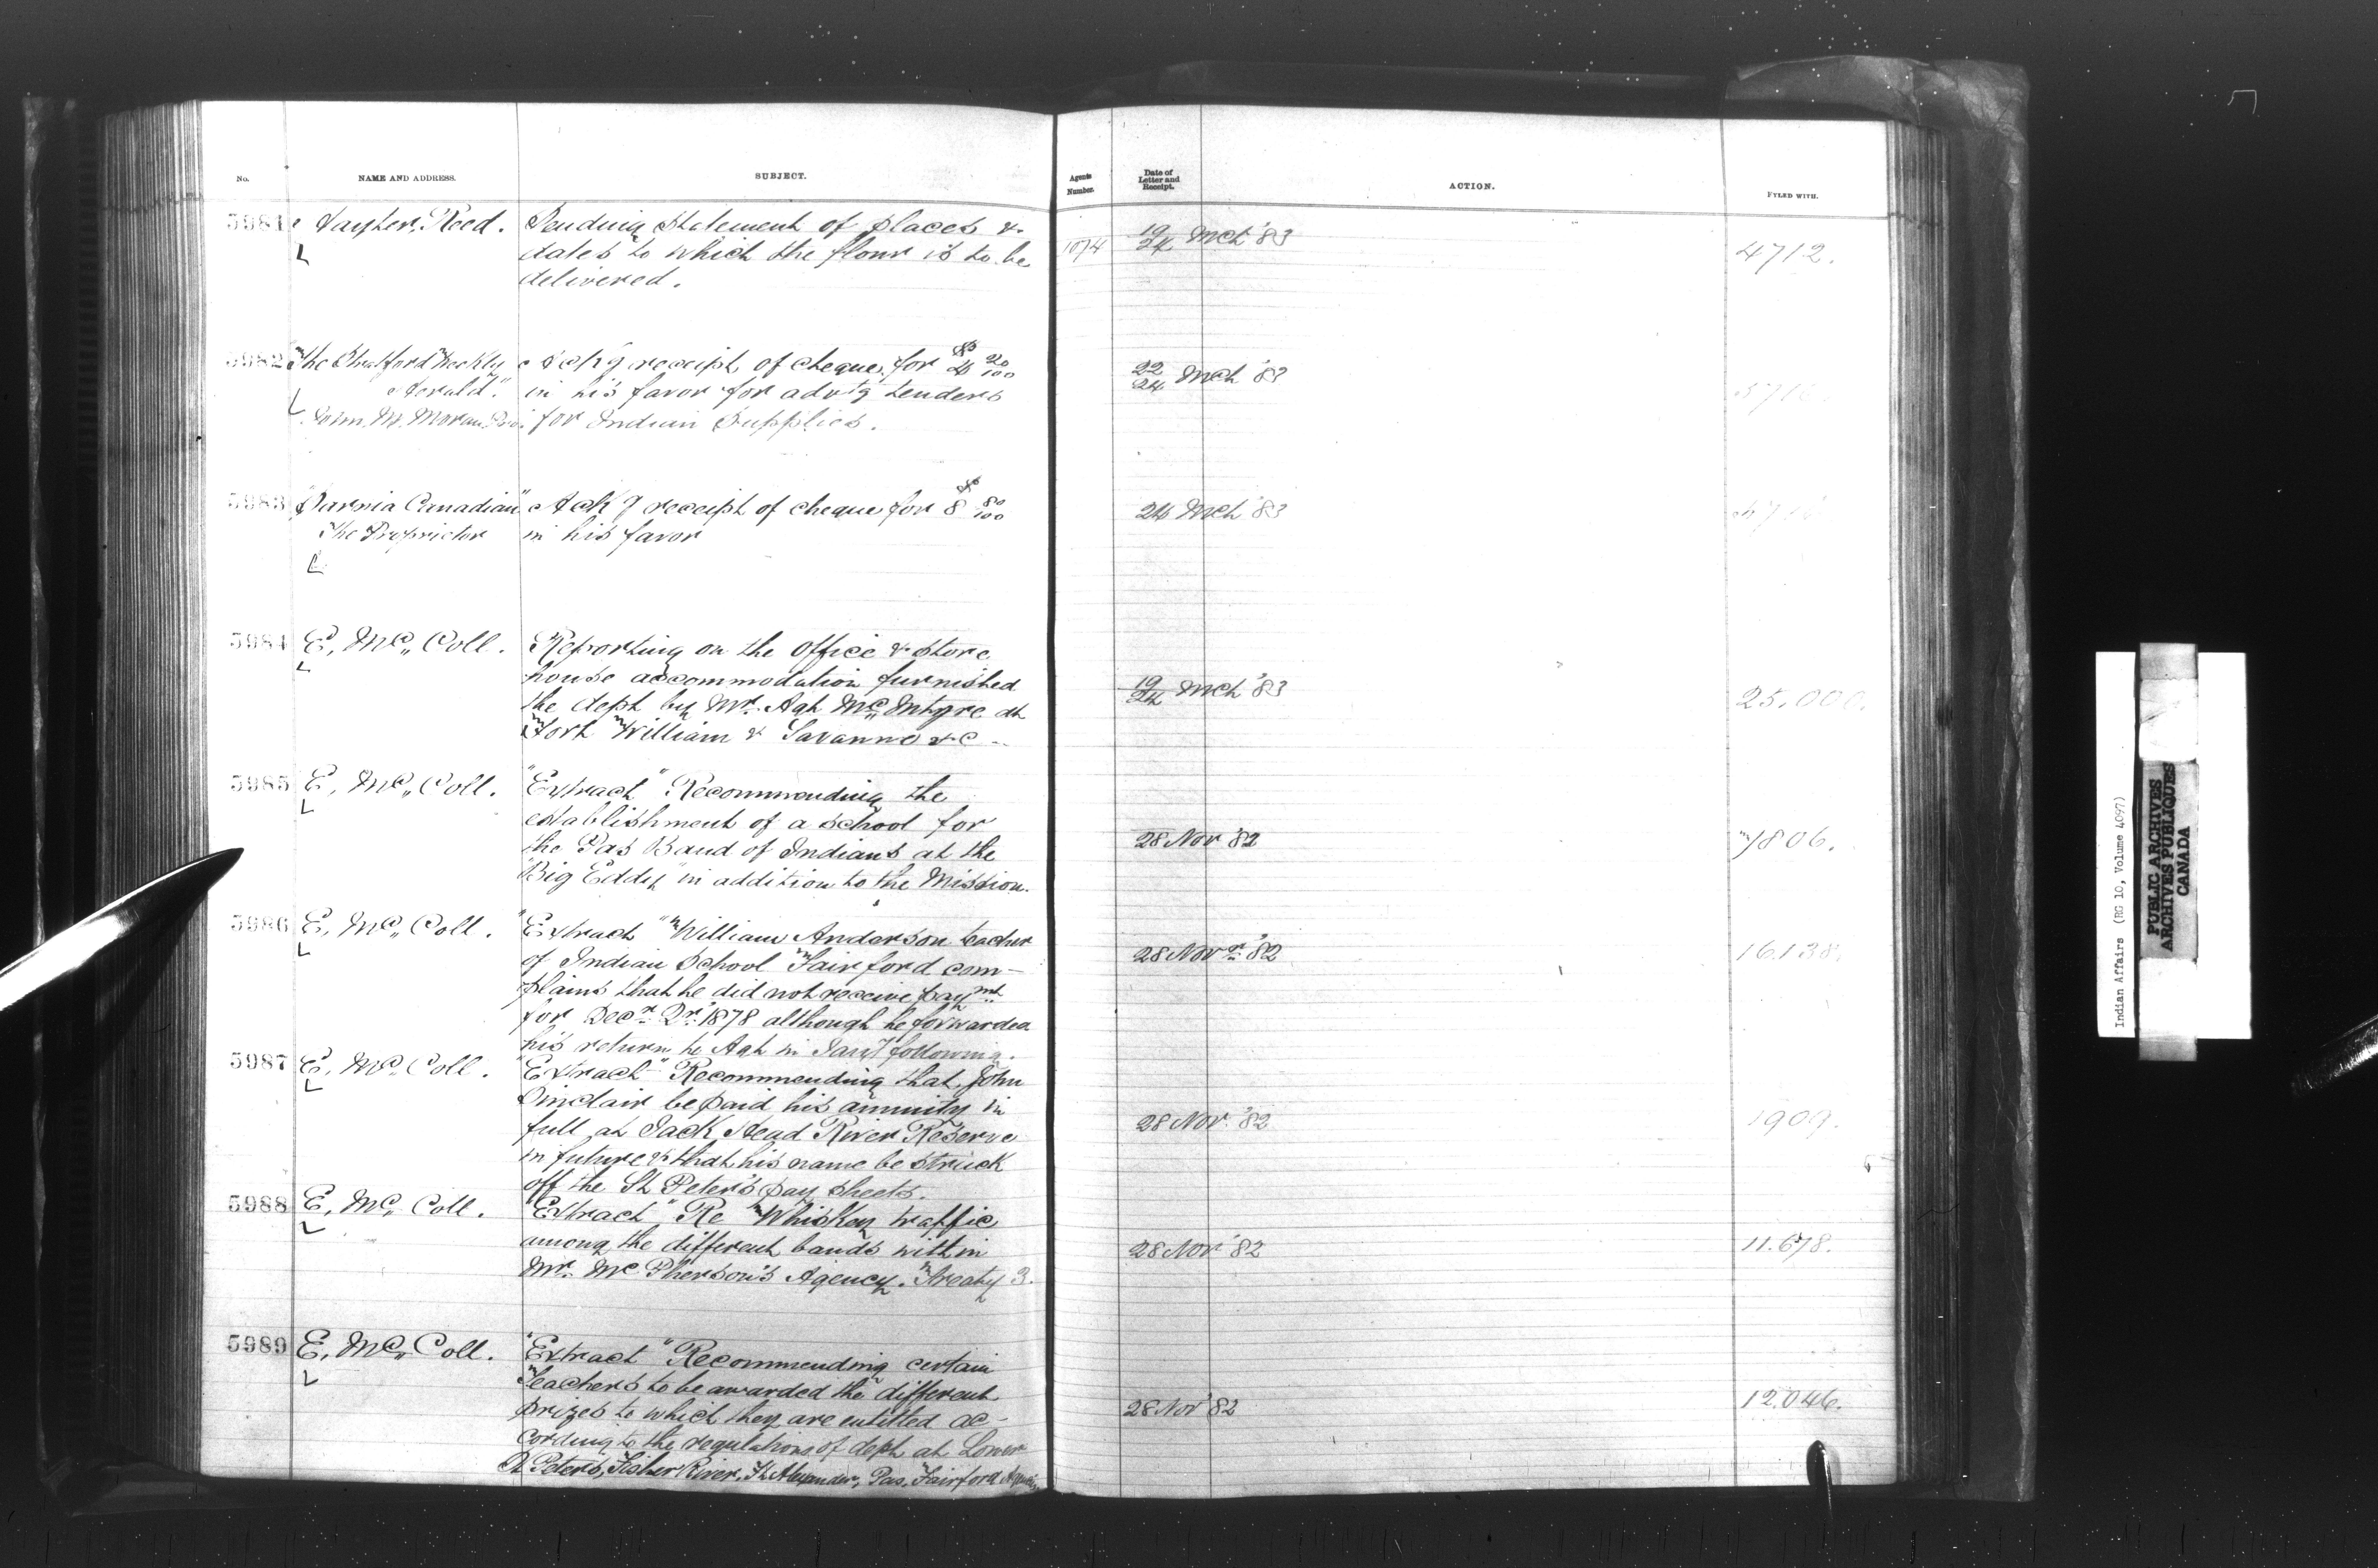 No.
NAME AND ADDRESS.
SUBJECT.
Agents Number.
Date of Letter and Receipt.
ACTION.
FYLED WITH.
5981 Hayter Reed. Sending Statement of places &
dates to which the flour is to be
delivered.
1074 19/24 Mch '83 4712.
5982 The Stratford Weekly
Herald".
John M. Moran
Ackg receipt of cheque for $4 20/100
in his favor for advtg tenders
for Indian Supplies.
22/24 Mch '83
5983 "Sarnia Canadian"
The Proprietor
Ackg receipt of cheque for $8 80/100
in his favor
24 Mch '83
5984 E. Mc Coll. Reporting on the Office & store
house accommodation furnished
the dept by Mr. Agt McIntyre at
Fort William & Savanne &c
19/24 Mch '83 25.000.
5985 E. Mc Coll. "Extract" Recommending the
establishment of a school for
the Pas Band of Indians at the
"Big Eddy" in addition to the Mission.
28 Nov '82 7806.
5986 E. Mc Coll. "Extract" William Anderson teacher
of Indian School Fairford com-
plains that he did not receive paymt
for Decr Qr 1878 although he forwarded
his return to Agt in Jany following.
28 Novr '82 16.138.
5987 E. Mc Coll. "Extract" Recommending that John
Sinclair be paid his annuity in
full at Jack Head River Reserve
in future & that his name be struck
off the St Peter's pay sheets.
28 Nov. '82 1909.
5988 E. Mc Coll. "Extract" Re Whiskey traffic
among the different bands within
Mr. McPherson's Agency. Treaty 3.
28 Nov '82 11.678.
5989 E. Mc Coll. "Extract" Recommending certain
Teachers to be awarded the different
prizes to which they are entitled ac-
cording to the regulations of dept at Lower
St Peters, Fisher River, Ft Alexander, Pas, Fairford
28 Nov '82 12.046.
Indian Affairs (RG 10, Volume 4097)
PUBLIC ARCHIVES
ARCHIVES PUBLIQUES
CANADA